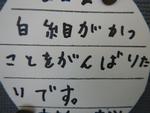 白組がかつ
ことをがんばりた
いです。